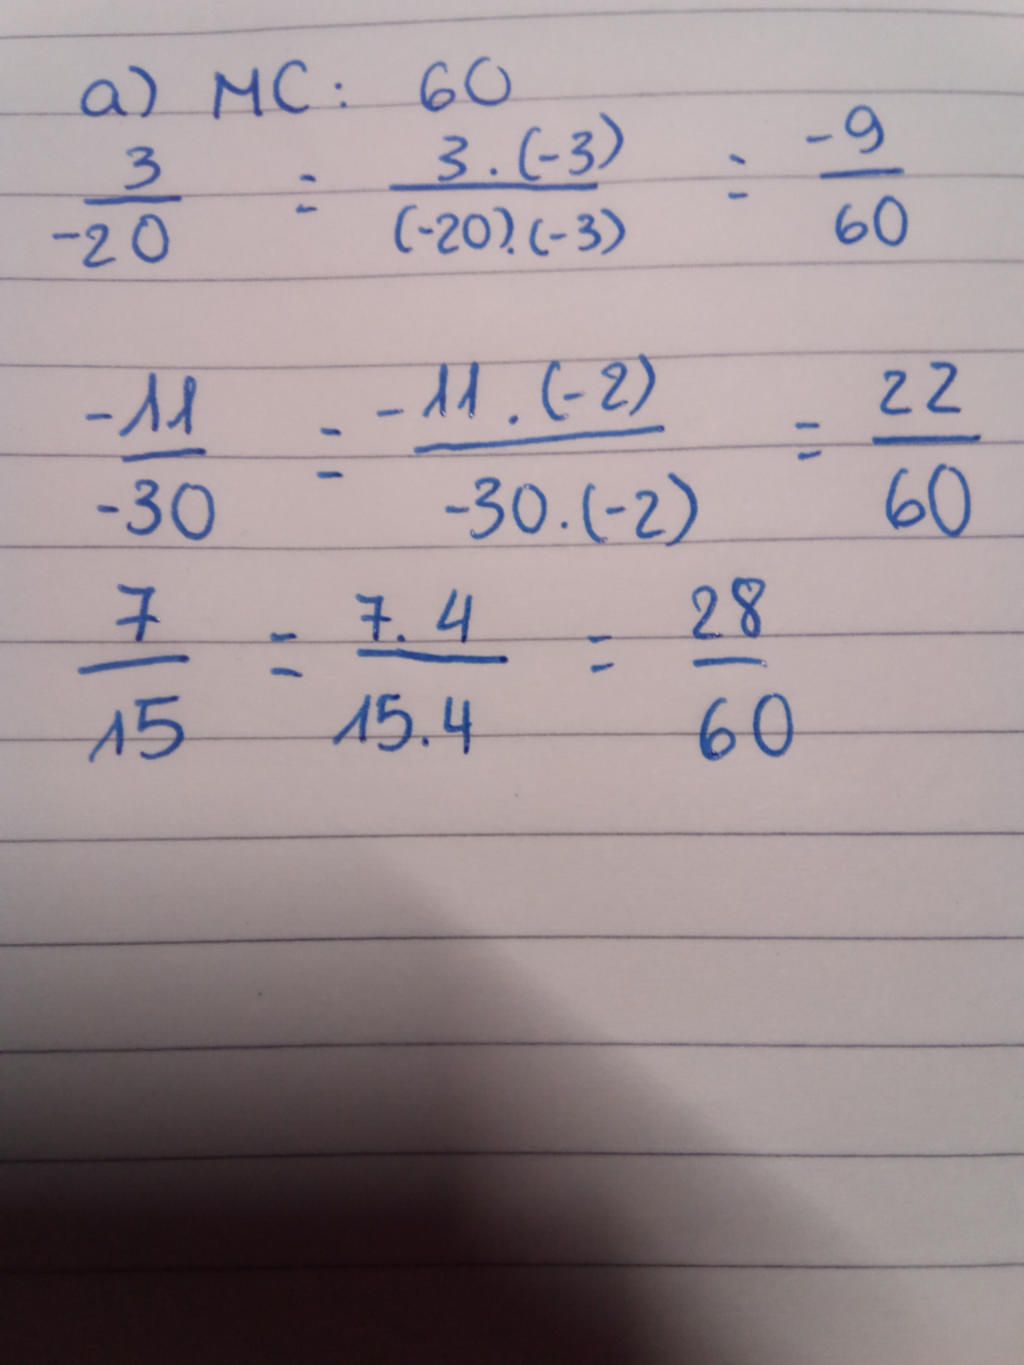 a) MC: 60
3/-20 = 3.(-3)/(-20).(-3) = -9/60
-11/-30 = -11.(-2)/-30.(-2) = 22/60
7/15 = 7.4/15.4 = 28/60